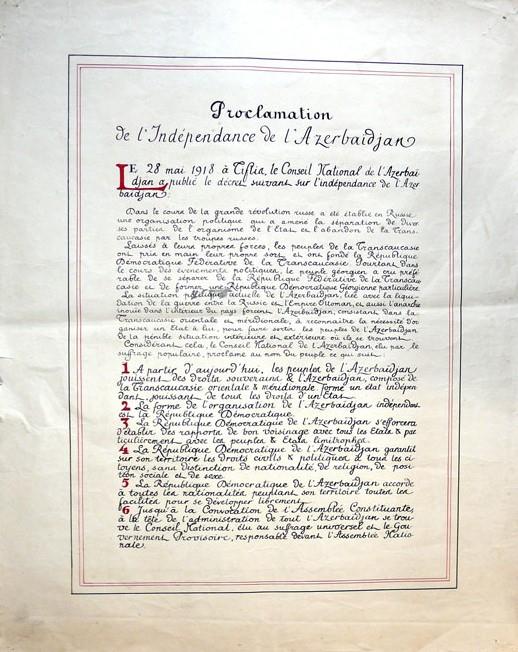 Proclamation
de l'Indépendance de l'Azerbaidjan
LE 28 mai 1918 à Tiflis, le Conseil National de l'Azerbai
djan a publié le décret suivant sur l'indépendance de l'Azer
baidjan:
Dans le cours de la grande révolution russe a été établie en Russie
une organisation politique qui a amené la séparation de diver
ses parties de l'organisme de l'Etat et l'abandon de la Trans
caucasie par les troupes russes.
Laissés à leurs propres forces, les peuples de la Transcaucasie
ont pris en main leur propre sort et ont fondé la République
Démocratique Fédérative de la Transcaucasie. Pourtant dans
le cours des événements politiques, le peuple géorgien a cru préfé
rable de se séparer de la République Fédérative de la Transcau
casie et de former une République Démocratique Géorgienne particulière
La situation politique actuelle de l'Azerbaidjan, liée avec la liqui-
dation de la guerre entre la Russie et l'Empire Ottoman, et aussi l'anarchie
inouïe dans l'intérieur du pays forcent l'Azerbaidjan, consistant dans la
Transcaucasie orientale et méridionale, à reconnaître la nécessité d'or
ganiser un Etat à lui, pour faire sortir les peuples de l'Azerbaidjan
de la pénible situation intérieure et extérieure où ils se trouvent.
Considérant cela, le Conseil National de l'Azerbaidjan, élu par le
suffrage populaire, proclame au nom du peuple ce qui suit:
1 A partir d'aujourd'hui, les peuples de l'Azerbaidjan
jouissent des droits souverains & l'Azerbaidjan, composé de
la Transcaucasie orientale & méridionale, forme un état indépen
dant, jouissant de tout les droits d'un Etat.
2 La forme de l'organisation de l'Azerbaidjan indépendant
est la République Démocratique.
3 La République Démocratique de l'Azerbaidjan s'efforcera
d'établir des rapports de bon voisinage avec tous les Etats & par
ticulièrement avec les peuples & Etats limitrophes.
4 La République Démocratique de l'Azerbaidjan garantit
sur son territoire les droits civils & politiques à tous les ci-
toyens, sans distinction de nationalité, de religion, de posi
tion sociale et de sexe.
5 La République Démocratique de l'Azerbaidjan accorde
à toutes les nationalités peuplant son territoire toutes les
facilités pour se développer librement.
6 Jusqu'à la Convocation de l'Assemblée Constituante,
à la tête de l'administration de tout l'Azerbaidjan se trou-
ve le Conseil National, élu au suffrage universel et le Gou
vernement Provisoire, responsable devant l'Assemblée Natio
nale.